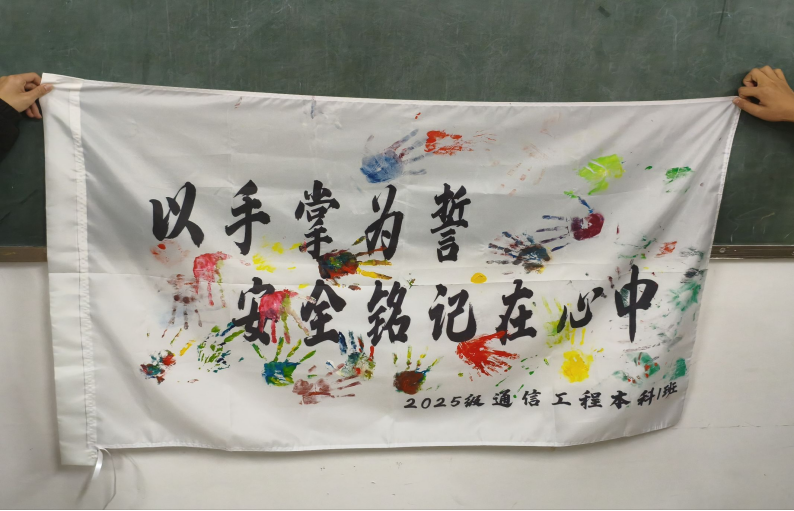 以手掌为誓
安全铭记在心中
2025级通信工程本科1班